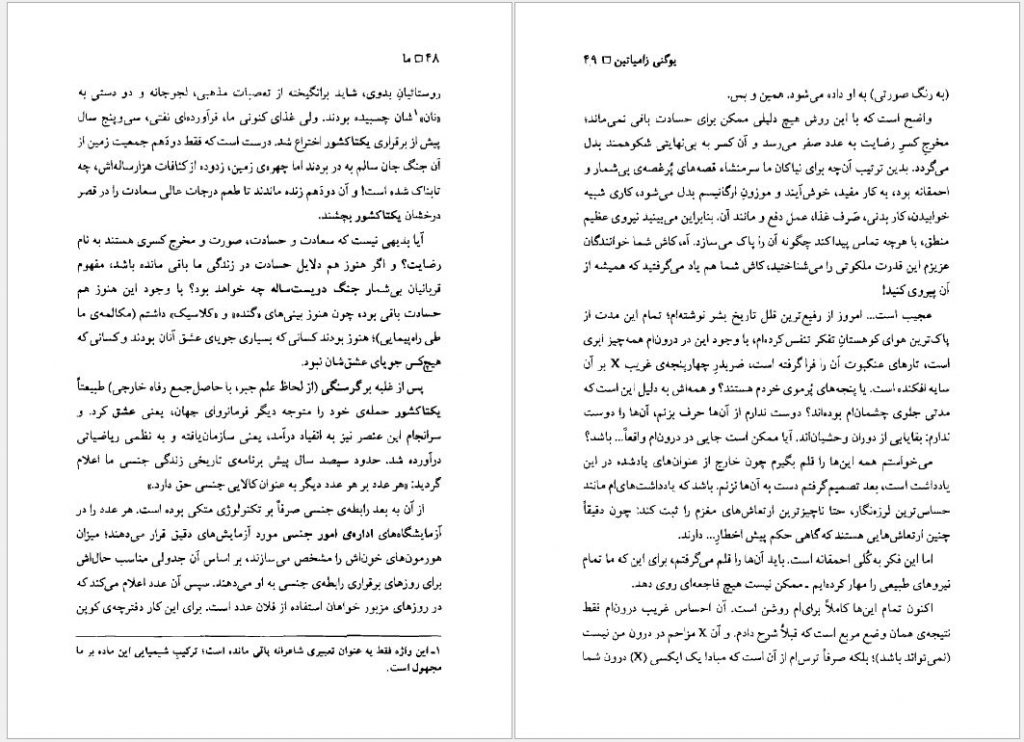 ۴۸ □ ما
روستائیانِ بدوی، شاید برانگیخته از تعصبات مذهبی، لجوجانه و دو دستی به
«نان»۱شان چسبیده بودند. ولی غذای کنونی ما، فرآورده‌ای نفتی، سی‌وپنج سال
پیش از برقراری یکتاکشور اختراع شد. درست است که فقط دودَهم جمعیت زمین از
آن جنگ جان سالم به در بردند اما چهره‌ی زمین، زدوده از کثافات هزارساله‌اش، چه
تابناک شده است! و آن دودَهم زنده ماندند تا طعم درجات عالی سعادت را در قصر
درخشان یکتاکشور بچشند.
آیا بدیهی نیست که سعادت و حسادت، صورت و مخرج کسری هستند به نام
رضایت؟ و اگر هنوز هم دلایل حسادت در زندگی ما باقی مانده باشد، مفهوم
قربانیان بی‌شمار جنگ دویست‌ساله چه خواهد بود؟ با وجود این هنوز هم
حسادت باقی بود، چون هنوز بینی‌های «گنده» و «کلاسیک» داشتم (مکالمه‌ی ما
طی راه‌پیمایی)؛ هنوز بودند کسانی که بسیاری جویای عشق آنان بودند و کسانی که
هیچ‌کس جویای عشق‌شان نبود.
پس از غلبه بر گرسنگی (از لحاظ علم جبر، با حاصل‌جمع رفاه خارجی) طبیعتاً
یکتاکشور حمله‌ی خود را متوجه دیگر فرمانروای جهان، یعنی عشق کرد. و
سرانجام این عنصر نیز به انقیاد درآمد، یعنی سازمان‌یافته و به نظمی ریاضیاتی
درآورده شد. حدود سیصد سال پیش برنامه‌ی تاریخی زندگی جنسی ما اعلام
گردید: «هر عدد بر هر عدد دیگر به عنوان کالایی جنسی حق دارد.»
از آن به بعد رابطه‌ی جنسی صرفاً بر تکنولوژی متکی بوده است. هر عدد را در
آزمایشگاه‌های اداره‌ی امور جنسی مورد آزمایش‌های دقیق قرار می‌دهند؛ میزان
هورمون‌های خون‌اش را مشخص می‌سازند، بر اساس آن جدولی مناسب حال‌اش
برای روزهای برقراری رابطه‌ی جنسی به او می‌دهند. سپس آن عدد اعلام می‌کند که
در روزهای مزبور خواهان استفاده از فلان عدد است. برای این کار دفترچه‌ی کوپن
۱ـ این واژه فقط به عنوان تعبیری شاعرانه باقی مانده است؛ ترکیبِ شیمیایی این ماده بر ما
مجهول است.
یوگنی زامیاتین □ ۴۹
(به رنگ صورتی) به او داده می‌شود. همین و بس.
واضح است که با این روش هیچ دلیلی ممکن برای حسادت باقی نمی‌ماند؛
مخرجِ کسرِ رضایت به عدد صفر می‌رسد و آن کسر به بی‌نهایتی شکوهمند بدل
می‌گردد. بدین ترتیب آن‌چه برای نیاکان ما سرمنشاء قصه‌های پُرغصه‌ی بی‌شمار و
احمقانه بود، به کار مفید، خوش‌آیند و موزونِ ارگانیسم بدل می‌شود، کاری شبیه
خوابیدن، کار بدنی، صَرف غذا، عمل دفع و مانند آن. بنابراین می‌بینید نیروی عظیم
منطق، با هرچه تماس پیدا کند چگونه آن را پاک می‌سازد. آه، کاش شما خوانندگان
عزیزم این قدرت ملکوتی را می‌شناختید، کاش شما هم یاد می‌گرفتید که همیشه از
آن پیروی کنید!
عجیب است... امروز از رفیع‌ترین قلل تاریخ بشر نوشته‌ام؛ تمام این مدت از
پاک‌ترین هوای کوهستانِ تفکر تنفس کرده‌ام، با وجود این در درون‌ام همه‌چیز ابری
است، تارهای عنکبوت آن را فرا گرفته است، ضربدرِ چهارپنجه‌ی غریب X بر آن
سایه افکنده است. یا پنجه‌های پُرموی خودم هستند؟ و همه‌اش به دلیل این است که
مدتی جلوی چشمان‌ام بوده‌اند؟ دوست ندارم از آن‌ها حرف بزنم، آن‌ها را دوست
ندارم: بقایایی از دوران وحشیان‌اند. آیا ممکن است جایی در درون‌ام واقعاً... باشد؟
می‌خواستم همه این‌ها را قلم بگیرم چون خارج از عنوان‌های یادشده در این
یادداشت است، بعد تصمیم گرفتم دست به آن‌ها نزنم. باشد که یادداشت‌های‌ام مانند
حساس‌ترین لرزه‌نگار، حتا ناچیزترین ارتعاش‌های مغزم را ثبت کند: چون دقیقاً
چنین ارتعاش‌هایی هستند که گاهی حکم پیش اخطارِ... دارند.
اما این فکر به‌کُلی احمقانه است. باید آن‌ها را قلم می‌گرفتم، برای این که ما تمام
نیروهای طبیعی را مهار کرده‌ایم ـ ممکن نیست هیچ فاجعه‌ای روی دهد.
اکنون تمام این‌ها کاملاً برای‌ام روشن است. آن احساس غریب درون‌ام فقط
نتیجه‌ی همان وضع مربع است که قبلاً شرح دادم. و آن X مزاحم در درون من نیست
(نمی‌تواند باشد)؛ بلکه صرفاً ترس‌ام از آن است که مبادا یک ایکسی (X) درون شما